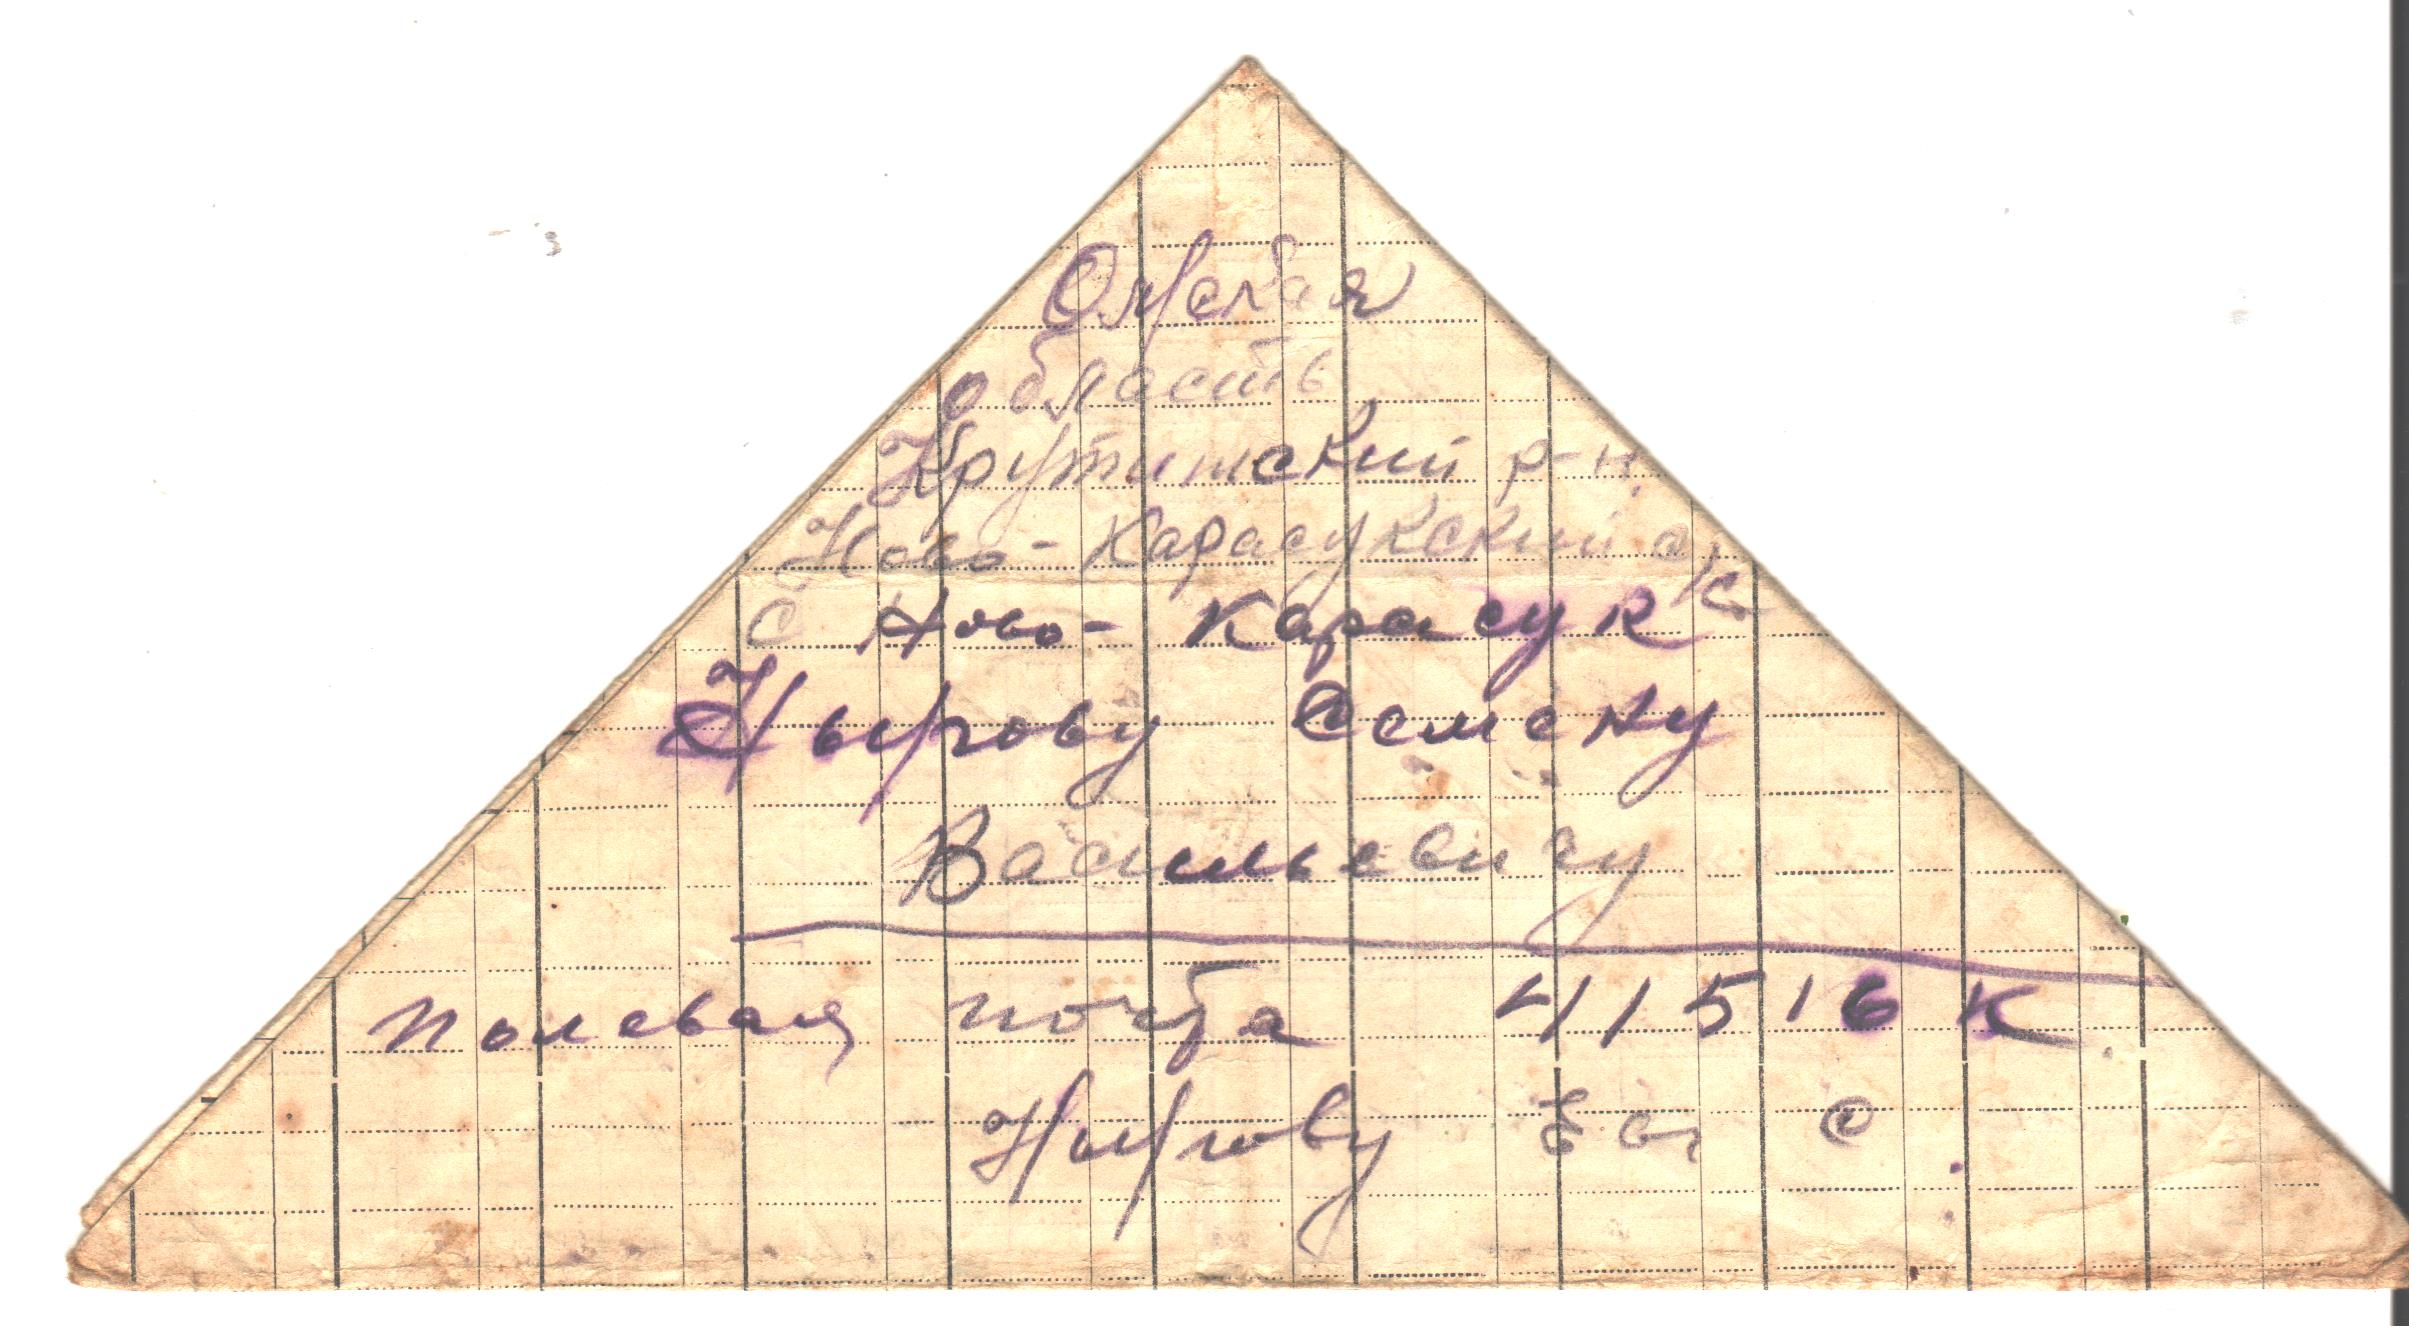 Омская
область
Крутинский р-н.
Ново-Карасукский с/с
с Ново-Карасук
Нырову Семену
Васильевичу
полевая почта 41516 К.
Нырову С